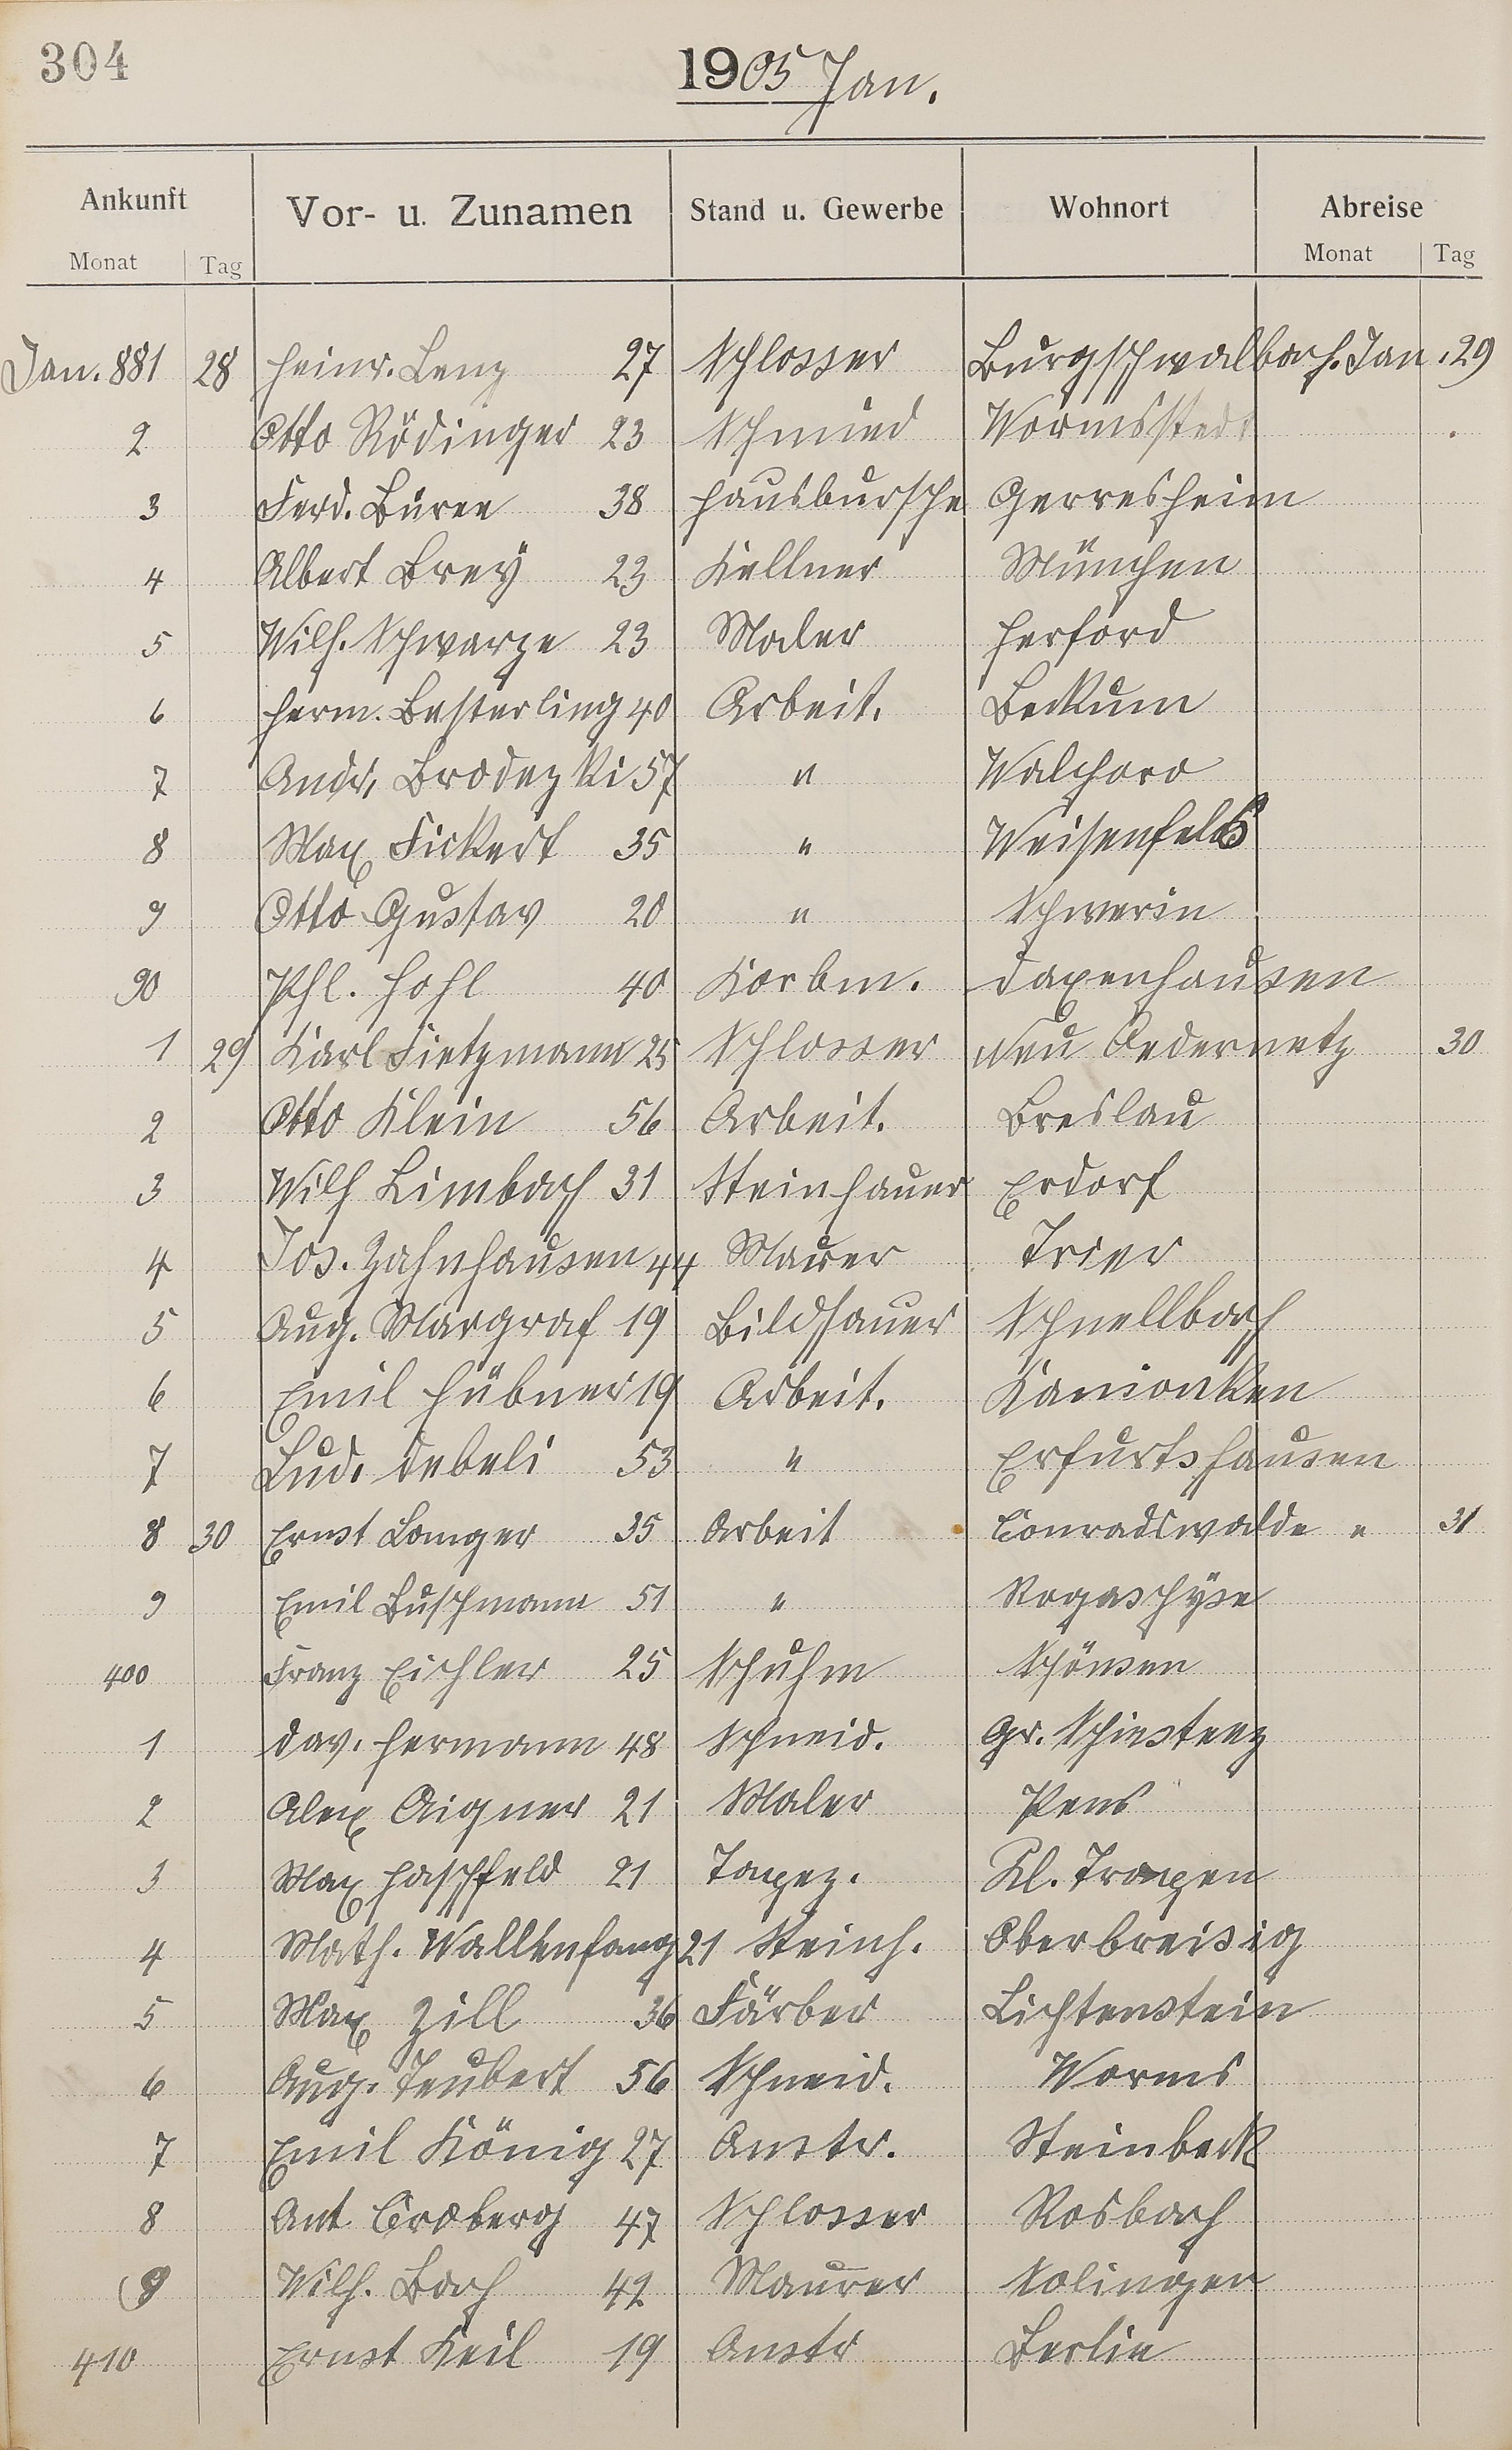 304
1905 Jan.
Ankunft Vor- u. Zunamen Stand u. Gewerbe Wohnort Abreise
Monat Tag Monat Tag
Jan. 881 28 Heinr. Lenz 27 Schlosser Burgschwalbach. Jan. 29
2 Otto Rödinger 23 Schmied Wormsstedt
3 Ferd. Büren 38 Hausbursche Gerresheim
4 Albert Brey 23 Kellner München
5 Wilh. Schwarze 23 Maler Herford
6 Herm. Besterling 40 Arbeit. Beckum
7 Andr. Brodezki 57 " Walchoro
8 Max Fickert 35 " Weisenfels
9 Otto Gustav 20 " Schwerin
90 Phl. Hohl 40 Korbm. Daxenhausen
1 29 Karl Fietzmann 25 Schlosser Neu Oedernetz 30
2 Otto Klein 56 Arbeit. Breslau
3 Wilh Limbach 31 Steinhauer Erdorf
4 Jos. Zahnhausen 44 Maurer Trier
5 Aug. Margraf 19 Bildhauer Schnellbach
6 Emil Hübner 19 Arbeit. Kamionken
7 Lud. Debeli 53 " Erfurtshausen
8 30 Ernst Langer 35 Arbeit Conradswalde " 31
9 Emil Buschmann 51 "
400 Franz Eichler 25 Schuhm Schönsen
1 Dav. Hermann 48 Schneid. Gr. Schiestenz
2 Alex Aigner 21 Maler Pens
3 Max Haschfeld 21 Tapez. Kl. Trampen
4 Math. Wallenfang 21 Steinh. Oberbreisig
5 Max Zill 36 Färber Lichtenstein
6 Aug. Teubert 56 Schneid. Worms
7 Emil König 27 Anstr. Steinbeck
8 Ant Croberg 47 Schlosser Rosbach
9 Wilh. Bach 42 Maurer Solingen
410 Ernst Keil 19 Anstr Berlin